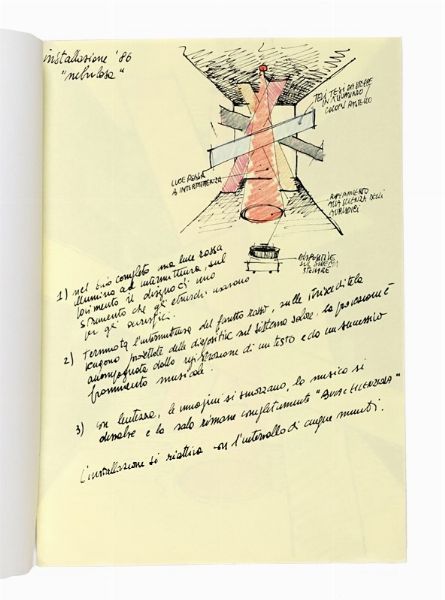 installazione '86
"nebulosa"
TELI TESI DA PARETE
IN
COLORI
LUCE ROSSA
A INTERMITTENZA
RIFERIMENTO
ALLA SCIENZA DEGLI
DIAPOSITIVE
SUL SISTEMA
SOLARE
1) nel buio completo una luce rossa
illumina ad intermittenza, sul
pavimento il disegno di uno
strumento che gli etruschi usavano
per gli auspici.
2) Terminata l'intermittenza del faretto rosso, sulle strisce di tela
vengono proiettate delle diapositive sul sistema solare, la proiezione è
accompagnata dalla registrazione di un testo e da un successivo
frammento musicale.
3) con lentezza, le immagini si smorzano, la musica si
dissolve e la sala rimane completamente "BUIA E SILENZIOSA"
L'installazione si riattiva con l'intervallo di cinque minuti.